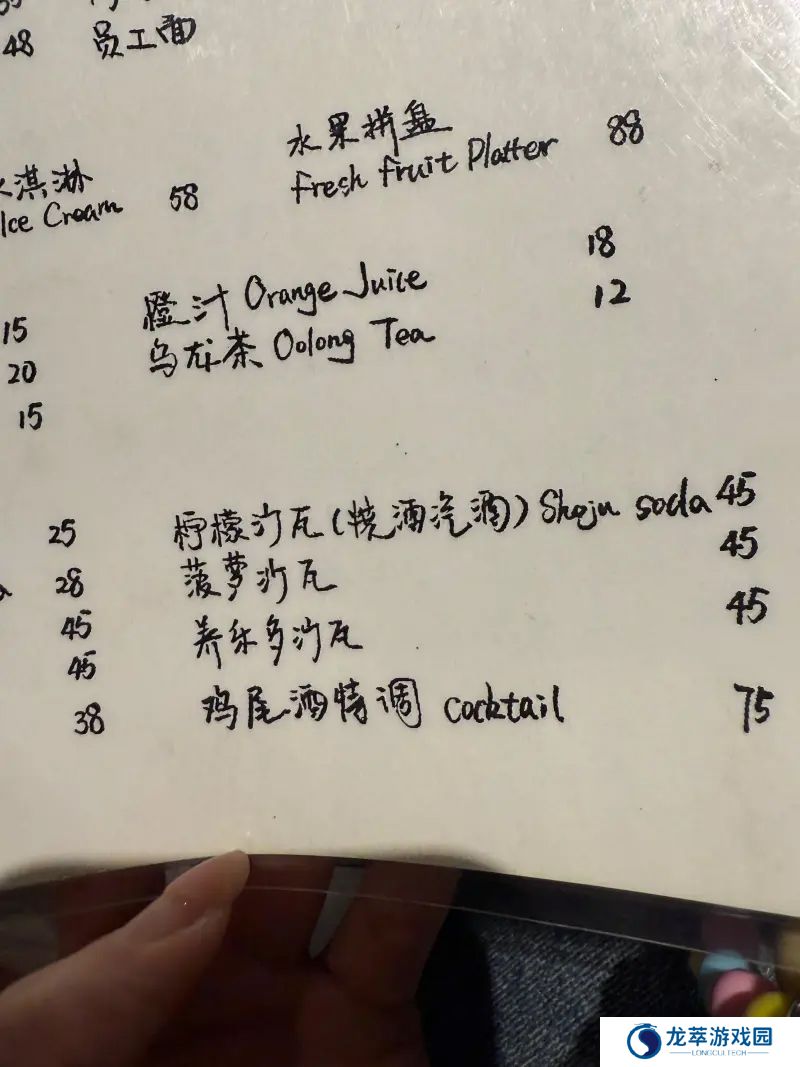 48 员工面
水果拼盘 88
Fresh fruit Platter
淇淋 58
Ice Cream
18
15 橙汁 Orange Juice
12
20 乌龙茶 Oolong Tea
15
25 柠檬沙瓦(烧酒汽酒) Shoju soda 45
28 菠萝沙瓦 45
45 养乐多沙瓦 45
45
38 鸡尾酒特调 cocktail 75
龙萃游戏园
LONGCUITECH